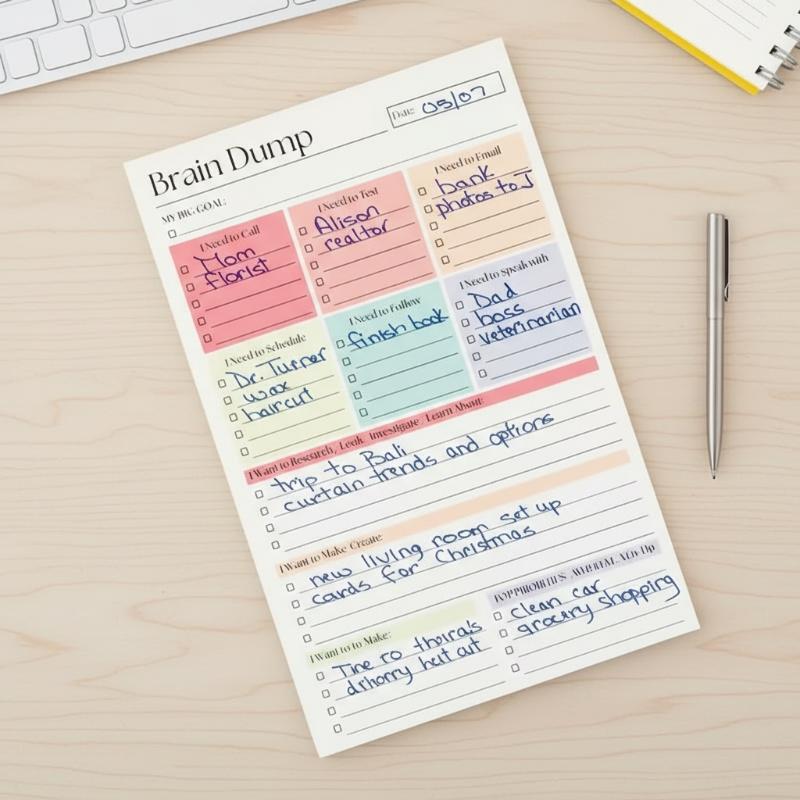 Brain Dump
Date: 05/07
MY BIG GOAL:
I Need to Call
Mom
florist
I Need to Text
Alison
realtor
I Need to Email
bank
photos to J
I Need to Schedule
Dr. Turner
wax
haircut
I Need to Follow
finish book
I Need to Speak with
Dad
boss
veterinarian
I Want to Research, Look, Investigate, Learn About:
trip to Bali
curtain trends and options
I Want to Make Create:
new living room set up
cards for Christmas
I Want to to Make:
hert out
clean car
grocery shopping